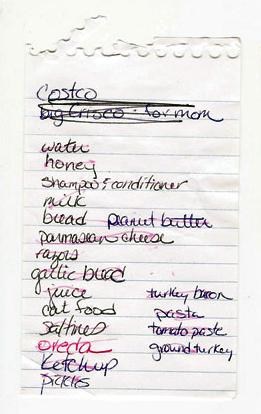 Costco
big Crisco - for mom
water
honey
shampoo & conditioner
milk
bread peanut butter
parmasean cheese
razors
garlic bread
juice turkey bacon
cat food pasta
saltines tomato paste
oreda ground turkey
ketchup
pickles